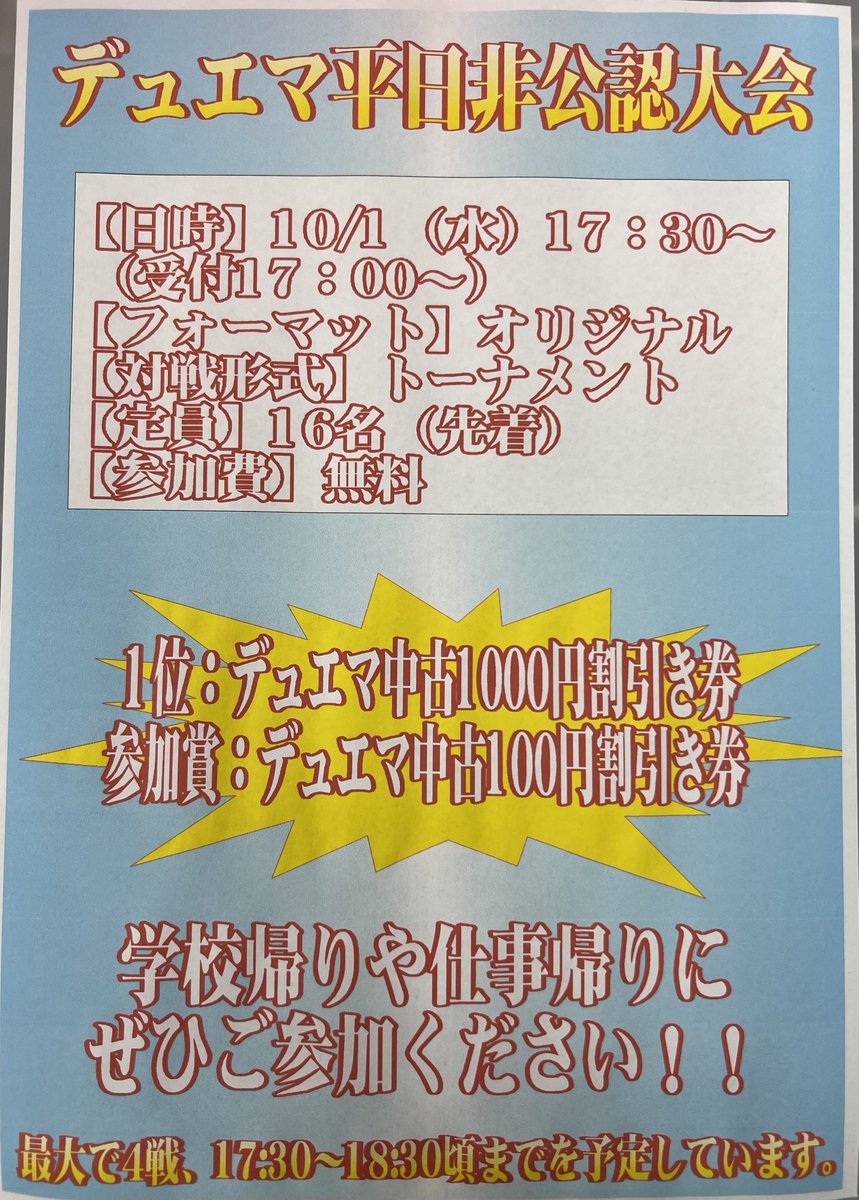 デュエマ平日非公認大会
【日時】10/1（水）17：30〜
（受付17：00〜）
【フォーマット】オリジナル
【対戦形式】トーナメント
【定員】16名（先着）
【参加費】無料
1位：デュエマ中古1000円割引き券
参加賞：デュエマ中古100円割引き券
学校帰りや仕事帰りに
ぜひご参加ください！！
最大で4戦、17:30〜18:30頃までを予定しています。